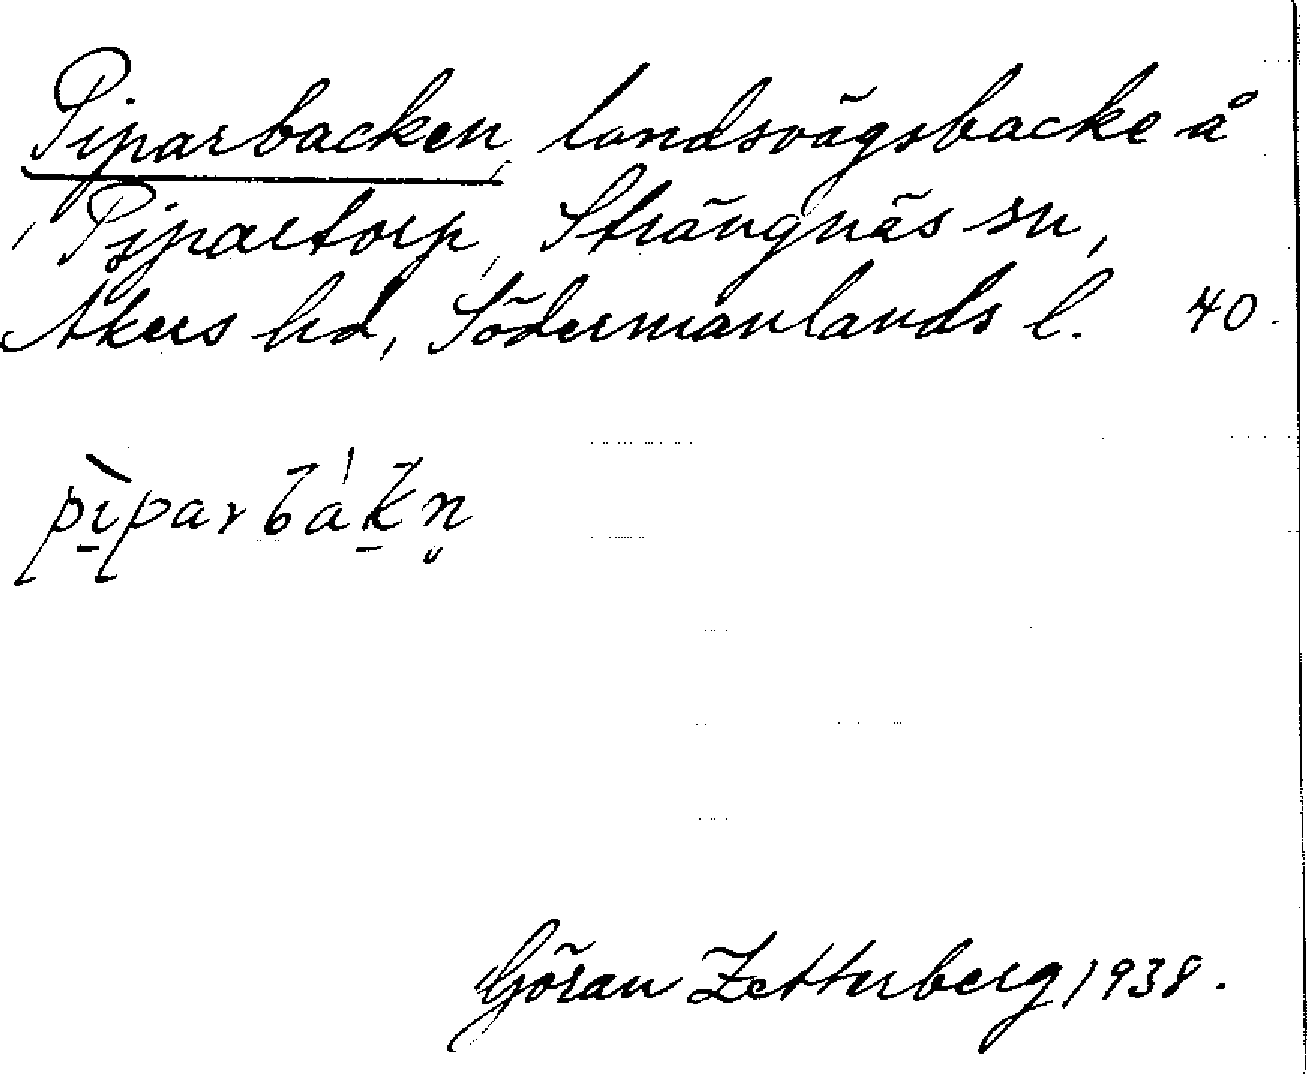 Piparbacken, landsvägsbacke å
Pipartorp, Strängnäs sn,
Åkers hd, Södermanlands l. 40.
pìparbákn̥
Göran Zetterberg 1938.